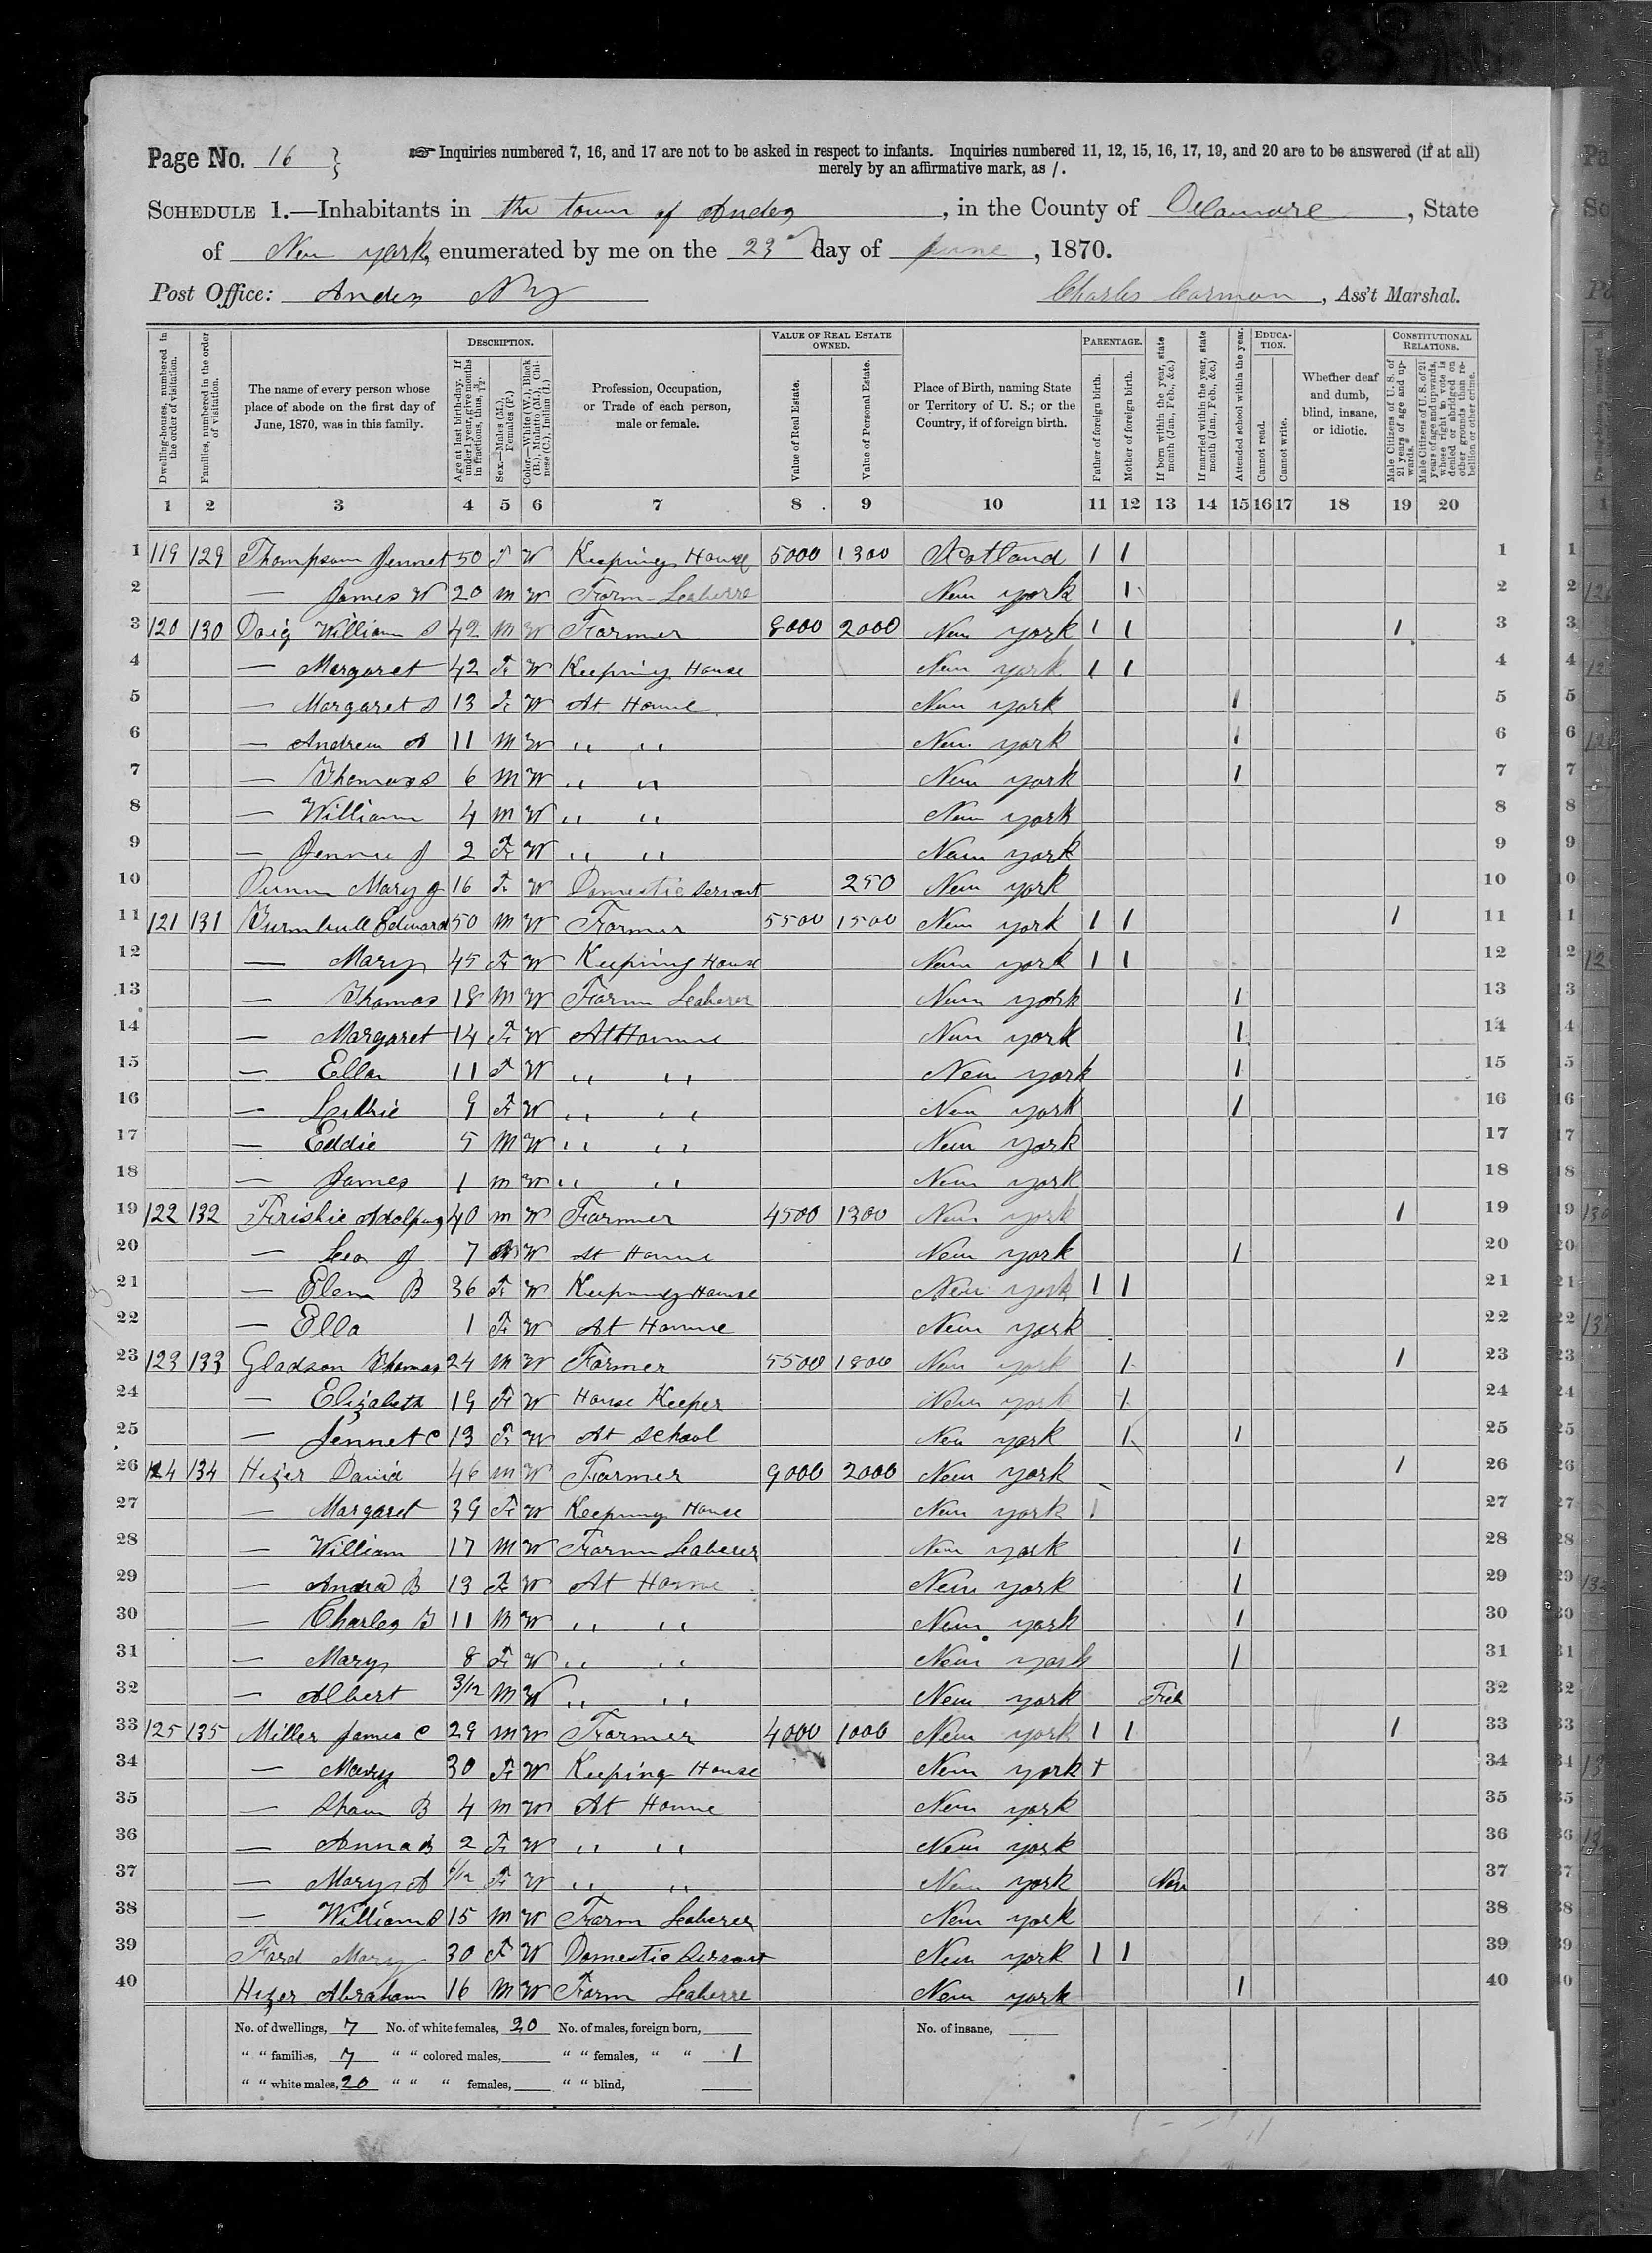 Page No. 16 }
☞ Inquiries numbered 7, 16, and 17 are not to be asked in respect to infants. Inquiries numbered 11, 12, 15, 16, 17, 19, and 20 are to be answered (if at all)
merely by an affirmative mark, as /.
SCHEDULE 1.—Inhabitants in the town of Andes, in the County of Delaware, State
of New York, enumerated by me on the 23 day of June, 1870.
Post Office: Andes NY
Charles Carman, Ass't Marshal.
Dwelling-houses, numbered in the order of visitation.
Families, numbered in the order of visitation.
The name of every person whose place of abode on the first day of June, 1870, was in this family.
DESCRIPTION.
Age at last birth-day. If under 1 year, give months in fractions, thus, 3/12.
Sex.—Males (M.), Females (F.)
Color.—White (W.), Black (B.), Mulatto (M.), Chinese (C.), Indian (I.)
Profession, Occupation, or Trade of each person, male or female.
VALUE OF REAL ESTATE OWNED.
Value of Real Estate.
Value of Personal Estate.
Place of Birth, naming State or Territory of U. S.; or the Country, if of foreign birth.
PARENTAGE.
Father of foreign birth.
Mother of foreign birth.
If born within the year, state month (Jan., Feb., &c.)
If married within the year, state month (Jan., Feb., &c.)
Attended school within the year.
EDUCATION.
Cannot read.
Cannot write.
Whether deaf and dumb, blind, insane, or idiotic.
CONSTITUTIONAL RELATIONS.
Male Citizens of U. S. of 21 years of age and upwards.
Male Citizens of U. S. of 21 years of age and upwards, whose right to vote is denied or abridged on other grounds than rebellion or other crime.
1 2 3 4 5 6 7 8 9 10 11 12 13 14 15 16 17 18 19 20
1 119 129 Thompson Jennet 50 F W Keeping House 5000 1300 Scotland 1 1 1
2 — James W 20 M W Farm Laberre New York 1 2
3 120 130 Doig William S 42 M W Farmer 8000 2000 New York 1 1 1 3
4 — Margaret 42 F W Keeping House New York 1 1 4
5 — Margaret S 13 F W At Home New York 1 5
6 — Andrew A 11 M W " " New York 1 6
7 — Thomas S 6 M W " " New York 1 7
8 — William 4 M W " " New York 8
9 — Jennie J 2 F W " " New York 9
10 Dunn Mary J 16 F W Domestic Servant 250 New York 10
11 121 131 Turnbull Edward 50 M W Farmer 5500 1500 New York 1 1 1 11
12 — Mary 45 F W Keeping House New York 1 1 12
13 — Thomas 18 M W Farm Laberer New York 1 13
14 — Margaret 14 F W At Home New York 1 14
15 — Ella 11 F W " " New York 1 15
16 — 9 F W " " New York 1 16
17 — Eddie 5 M W " " New York 17
18 — James 1 M W " " New York 18
19 122 132 Frisbie Adolpus 40 M W Farmer 4500 1300 New York 1 19
20 — 7 M W At Home New York 1 20
21 — Elen B 36 F W Keeping House New York 1 1 21
22 — Ella 1 F W At Home New York 22
23 123 133 Gladson Thomas 24 M W Farmer 5500 1800 New York 1 1 23
24 — Elizabeth 19 F W House Keeper New York 1 24
25 — Jennet C 13 F W At School New York 1 1 25
26 124 134 Hizer David 46 M W Farmer 9000 2000 New York 1 26
27 — Margaret 39 F W Keeping House New York 1 27
28 — William 17 M W Farm Laberer New York 1 28
29 — B 13 F W At Home New York 1 29
30 — Charles 11 M W " " New York 1 30
31 — Mary 8 F W " " New York 1 31
32 — Albert 3/12 M W " " New York Feb 32
33 125 135 Miller James C 29 M W Farmer 4000 1000 New York 1 1 1 33
34 — Mary 30 F W Keeping House New York + 34
35 — B 4 M W At Home New York 35
36 — Anna B 2 F W " " New York 36
37 — Mary A F W " " New York Nov 37
38 — William 15 M W Farm Laberer New York 38
39 Ford Mary 30 F W Domestic Servant New York 1 1 39
40 Hizer Abraham 16 M W Farm Laberre New York 1 40
No. of dwellings, 7 No. of white females, 20 No. of males, foreign born, No. of insane,
" " families, 7 " " colored males, " " females, " " 1
" " white males, 20 " " " females, " " blind,